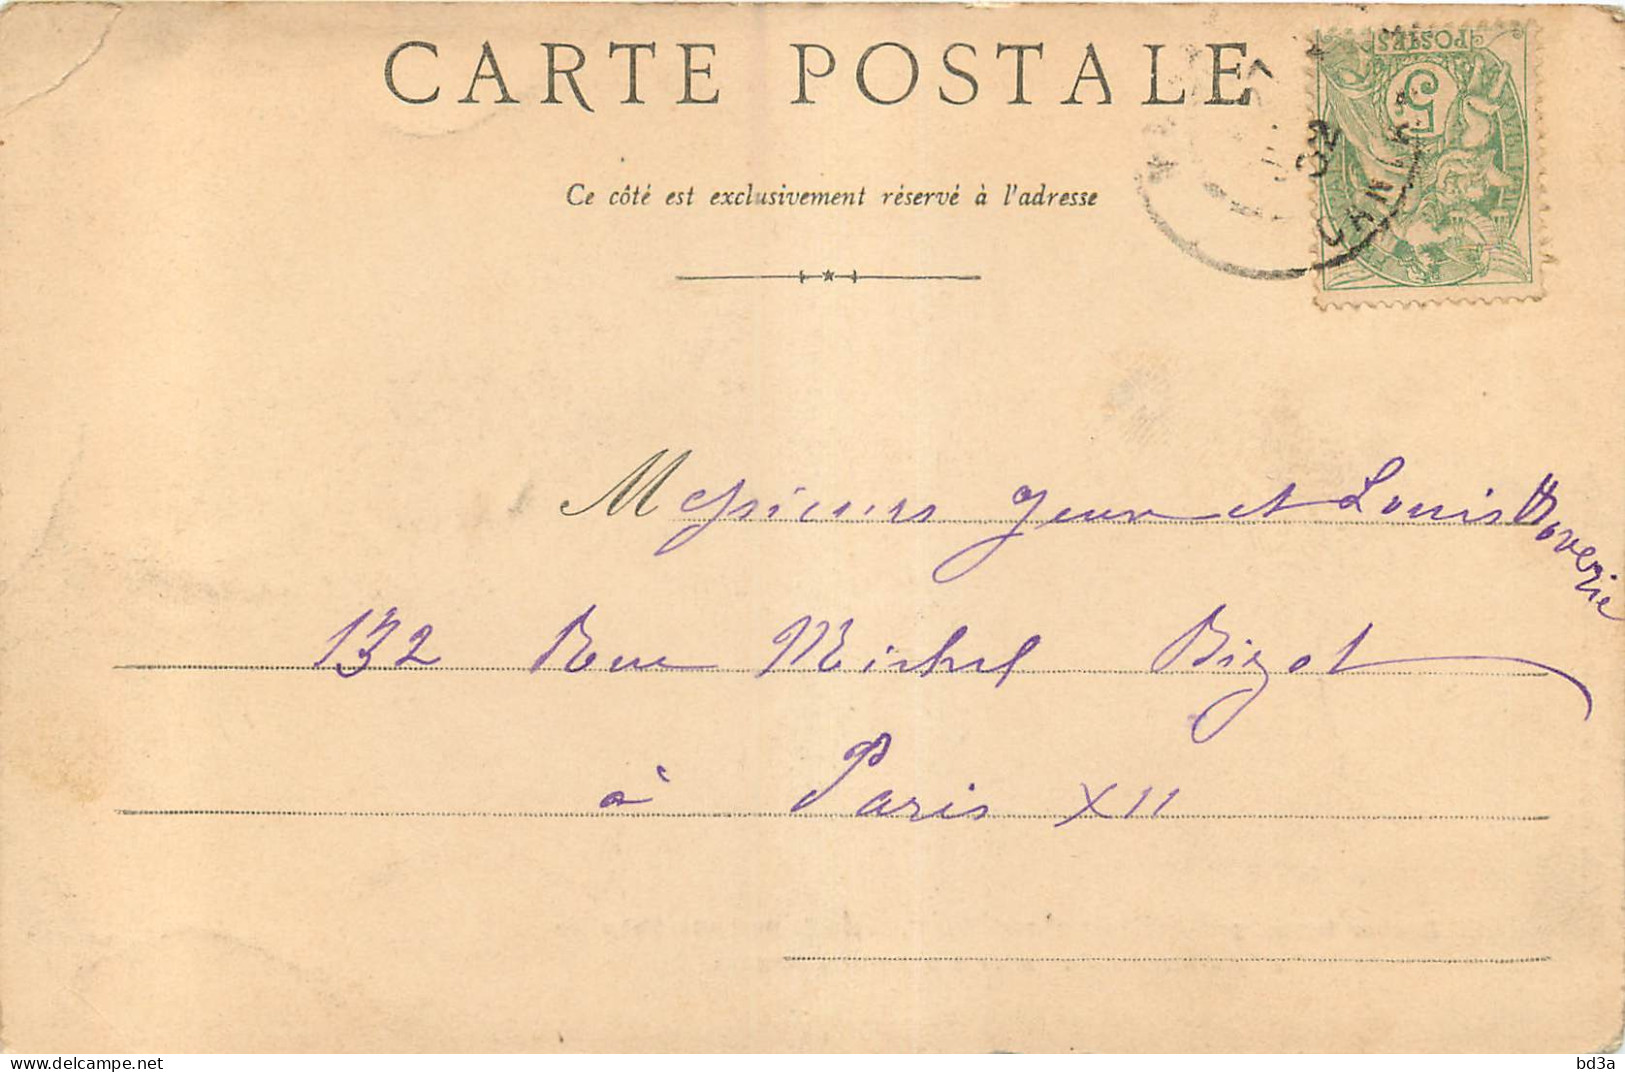 CARTE POSTALE
POSTES
5
02
Ce côté est exclusivement réservé à l'adresse
Messieurs Jean et Louis
132 Rue Michel Bizot
à Paris XII
bd3a